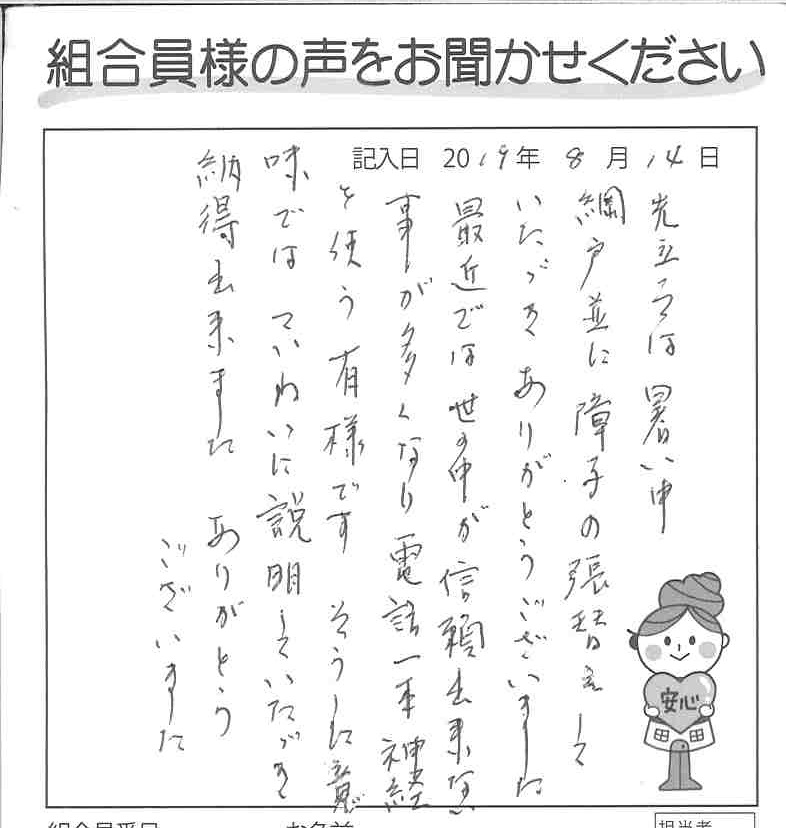 組合員様の声をお聞かせください
記入日 2019年 8月 14日
先立っては暑い中
網戸並に障子の張替えして
いただき ありがとうございました
最近では世の中が信頼出来ない
事が多くなり電話一本神経
を使う有様です そうした意
味では ていねいに説明していただき
納得出来ました ありがとう
ございました
安心
組合員番号
お名前
担当者